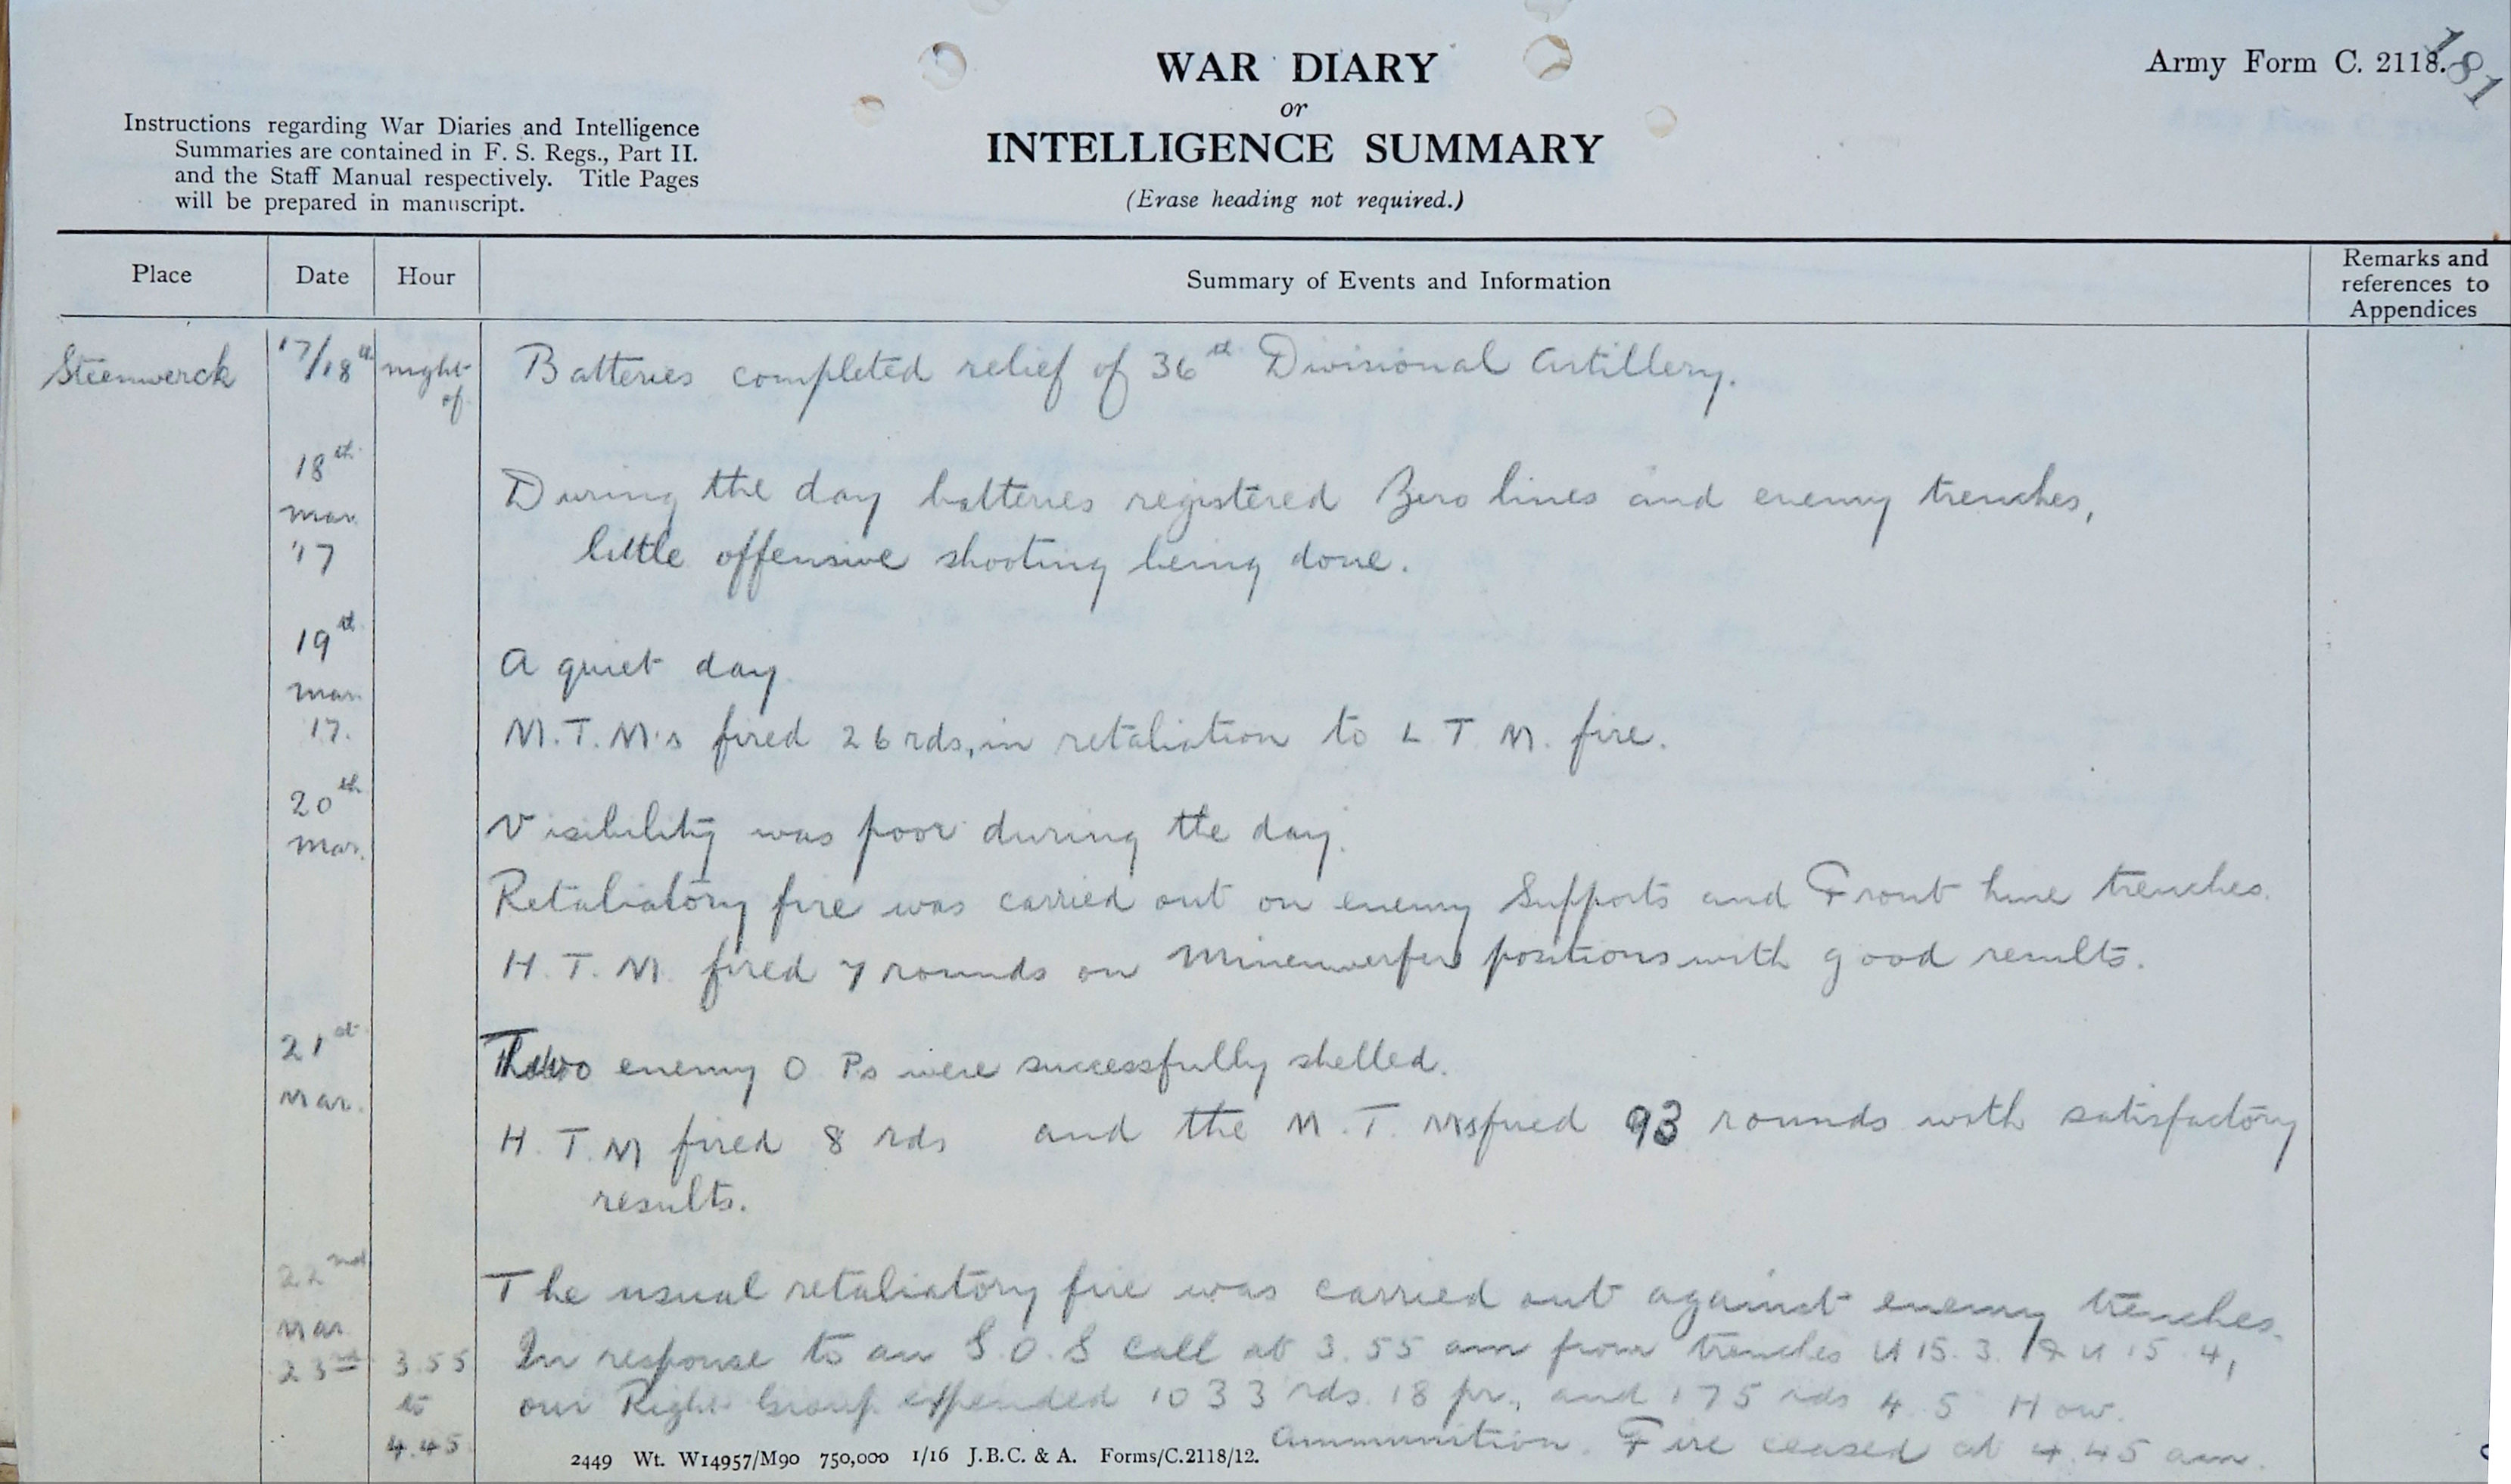 WAR DIARY
or
INTELLIGENCE SUMMARY
(Erase heading not required.)
Army Form C. 2118.
181
Instructions regarding War Diaries and Intelligence
Summaries are contained in F. S. Regs., Part II.
and the Staff Manual respectively. Title Pages
will be prepared in manuscript.
Place
Date
Hour
Summary of Events and Information
Remarks and
references to
Appendices
Steenwerck 17/18th night of Batteries completed relief of 36th Divisional Artillery.
18th
Mar
'17
During the day batteries registered Zero lines and enemy trenches,
little offensive shooting being done.
19th
Mar
17.
A quiet day.
M.T.M's fired 26 rds, in retaliation to L.T.M. fire.
20th
Mar.
Visibility was poor during the day.
Retaliatory fire was carried out on enemy Supports and Front line trenches.
H.T.M. fired 7 rounds on Minenwerfer positions with good results.
21st
Mar.
Two enemy O Ps were successfully shelled.
H.T.M fired 8 rds and the M.T.Ms fired 93 rounds with satisfactory
results.
22nd
Mar
The usual retaliatory fire was carried out against enemy trenches.
23rd 3.55 In response to an S.O.S call at 3.55 am from trenches U 15.3. & U 15.4,
to our Right Group expended 1033 rds. 18 pr., and 175 rds 4.5 How.
4.45 Ammunition. Fire ceased at 4.45 am.
2449 Wt. W14957/M90 750,000 1/16 J.B.C. & A. Forms/C.2118/12.